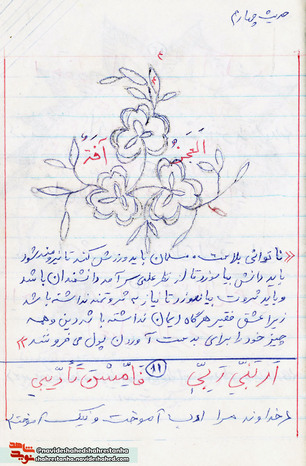 حدیث چهارم
العَجَزُ آفَةٌ
«ناتوانی بلاست» مسلمان باید ورزش کند تا نیرومند شود
باید دانش بیاموزد تا از نظر علمی سرآمد دانشمندان باشد
و باید ثروت بیاندوزد تا نیاز به ثروتمند نداشته باشد
زیرا فقیر هرگاه ایمان نداشته باشد دین و همه
چیز خود را برای بدست آوردن پول می‌فروشد
۱۱
اَدَّبَنی رَبّی فَاَحْسَنَ تَأدیبی
خداوند مرا ادب آموخت و نیک آموخت
@navideshahedshahrestantha
shahrestanha.navideshahed.com